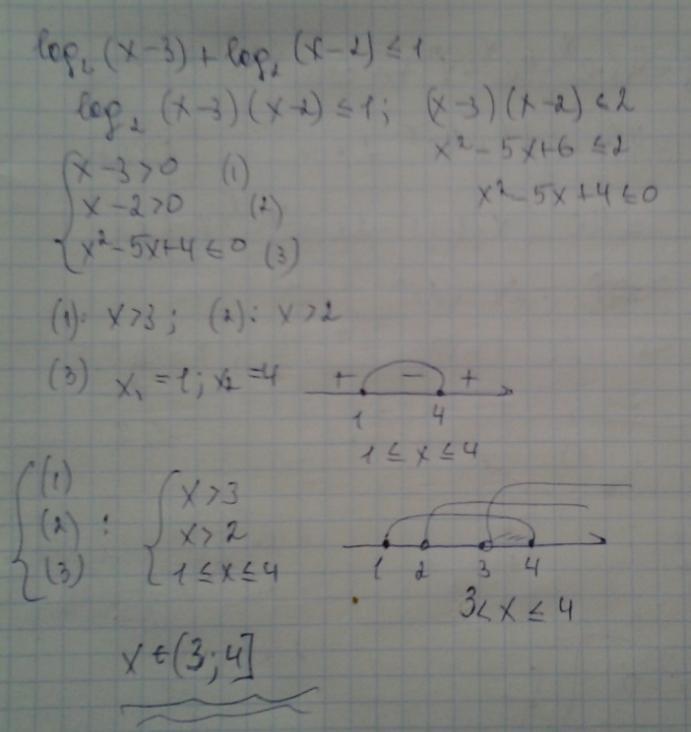 log₂ (x-3) + log₂ (x-2) ≤ 1
log₂ (x-3)(x-2) ≤ 1; (x-3)(x-2) ≤ 2
x² - 5x+6 ≤ 2
x-3>0 (1)
x² - 5x+4 ≤ 0
x-2>0 (2)
x²-5x+4 ≤ 0 (3)
(1): x>3; (2): x>2
(3) x₁ = 1; x₂ = 4
+ - +
1 4
1 ≤ x ≤ 4
(1)
(2) :
(3)
x>3
x>2
1 ≤ x ≤ 4
1 2 3 4
3 < x ≤ 4
x ∈ (3; 4]